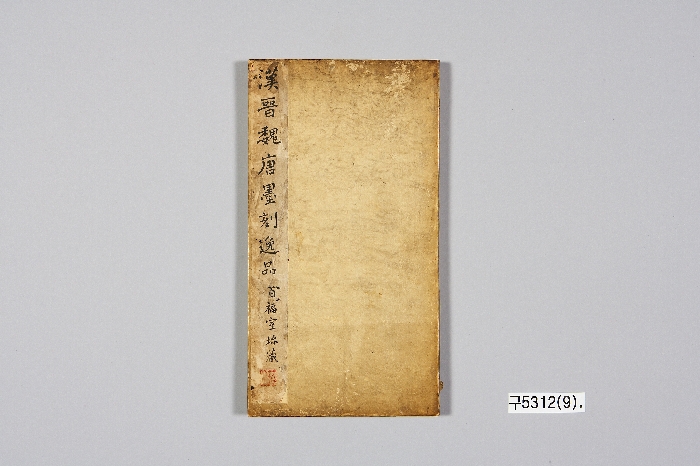 漢晉魏唐墨刻逸品
福室珍藏
구5312(9).